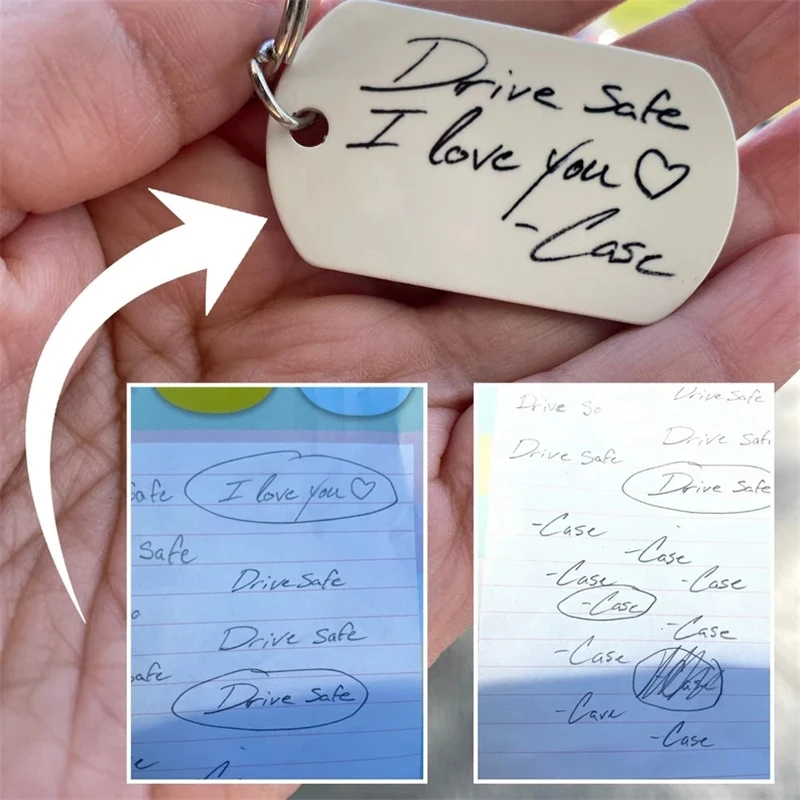 Drive Safe
I love you♡
-Case
Safe I love you♡
Safe
Drive Safe
Drive Safe
Drive Safe
Drive Sa
Drive Safe
Drive Safe
Drive Safe
Drive Safe
-Case
-Case
-Case
-Case
-Case
-Case
-Case
-Cave
-Case